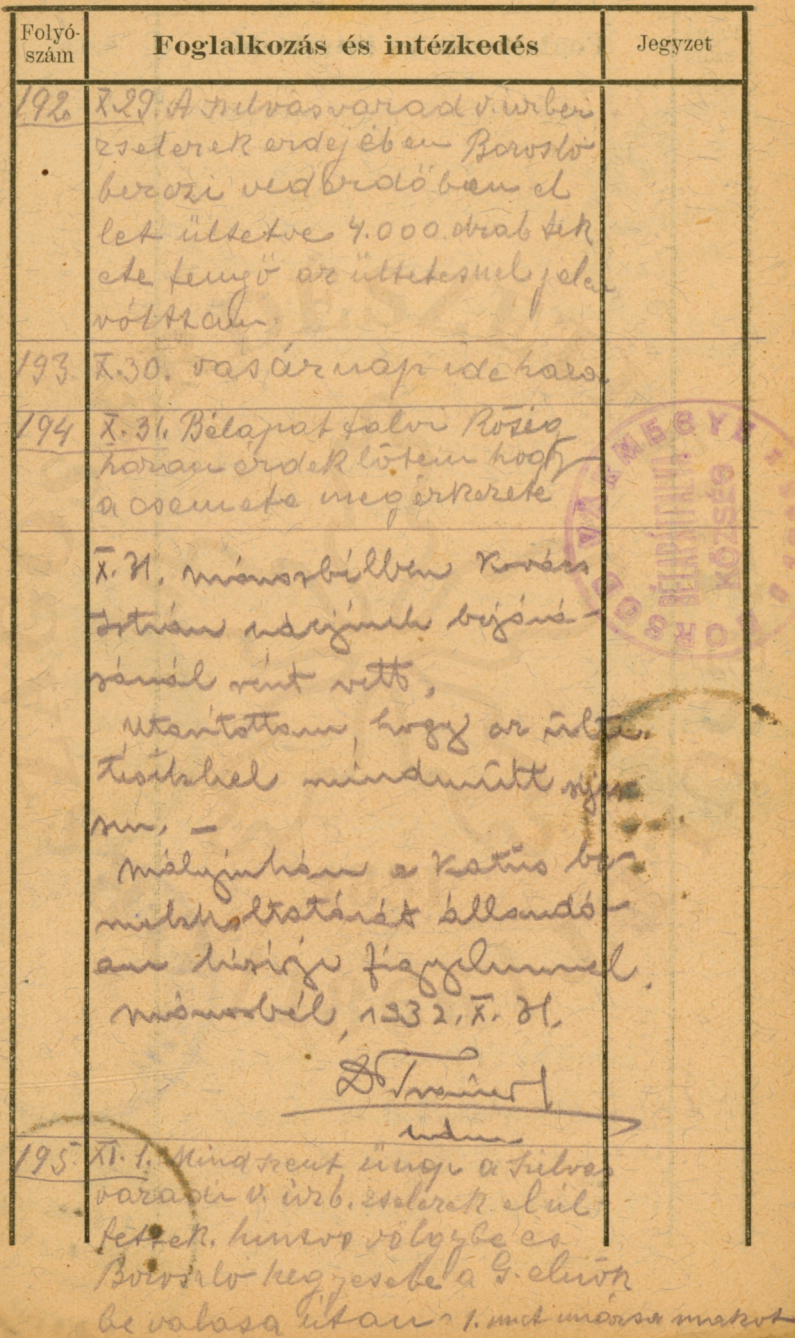 Folyó-
szám
Foglalkozás és intézkedés
Jegyzet
192. X.29. A szilvasvarad v. úrberi
zselerek erdejében Borosló
berczi véderdőben el
let ültetve 4.000 drab fek
ete fenyő az ültetésnél jelen
vóltam.
193. X.30. vasárnap ide haza
194 X.31. Bélapátfalvi Község
házan érdeklőtem hogy
a csemete megérkezete
BORSOD VÁRMEGYE
BÉLAPÁTFALVA
KÖZSÉG
X. 31. mónosbélben Kovács
István
részt vett.
Utasítottam, hogy az ülte-
tésekkel mindenütt
sen. –
Mályinkán a Katus
állandó-
an kisérje figyelemmel.
mónosbél, 1932. X. 31.
195. XI. 1. Mindszent ünap a szilvas
varadi v. úrb. zselerek elül
tettek. völgybe es
Boroszlo hegyesebe a G. elnök
be valasa útan 1.